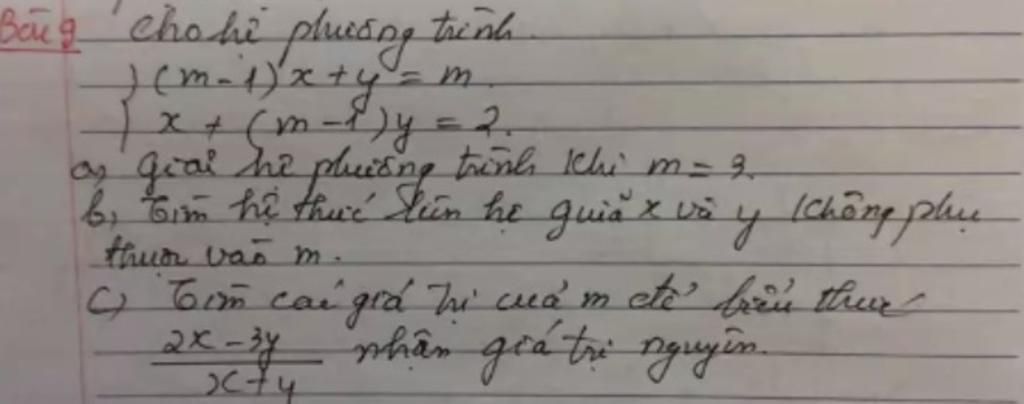 Bài 9 Cho hệ phương trình.
(m-1)x + y = m.
x + (m-1)y = 2.
a, giải hệ phương trình khi m = 3.
b, Tìm hệ thức liên hệ giữa x và y không phụ
thuộc vào m.
c) Tìm các giá trị của m để biểu thức
2x - 3y
nhận giá trị nguyên.
x + y